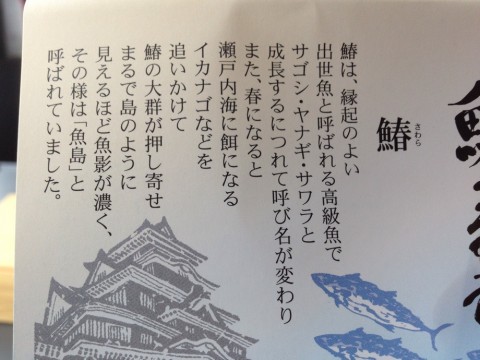 鰆
さわら
鰆は、縁起のよい
出世魚と呼ばれる高級魚で
サゴシ・ヤナギ・サワラと
成長するにつれて呼び名が変わり
また、春になると
瀬戸内海に餌になる
イカナゴなどを
追いかけて
鰆の大群が押し寄せ
まるで島のように
見えるほど魚影が濃く、
その様は「魚島」と
呼ばれていました。